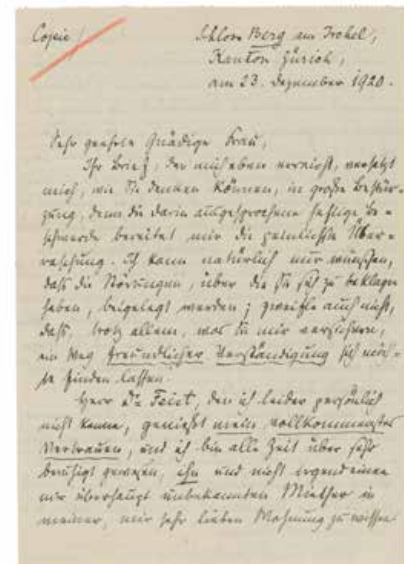 Copie/
Schloss Berg am Irchel,
Kanton Zürich,
am 23. Dezember 1920.
Sehr geehrte Gnädige Frau,
Ihr Brief, der mich eben erreicht, versetzt
mich, wie Sie denken können, in große Bestür-
zung, denn die darin ausgesprochene heftige Be-
schwerde bereitet mir die peinlichste Über-
raschung. Ich kann natürlich nur wünschen,
daß die Störungen, über die Sie sich zu beklagen
haben, beigelegt werden; zweifle auch nicht,
daß, trotz allem, was Sie mir versichern,
ein Weg freundlicher Verständigung sich möch-
te finden lassen.
Herr Dr Feist, den ich leider persönlich
nicht kenne, genießt mein vollkommenstes
Vertrauen, und ich bin alle Zeit über sehr
beruhigt gewesen, ihn und nicht irgend einen
mir überhaupt unbekannten Miether in
meiner, mir sehr lieben Wohnung zu wissen